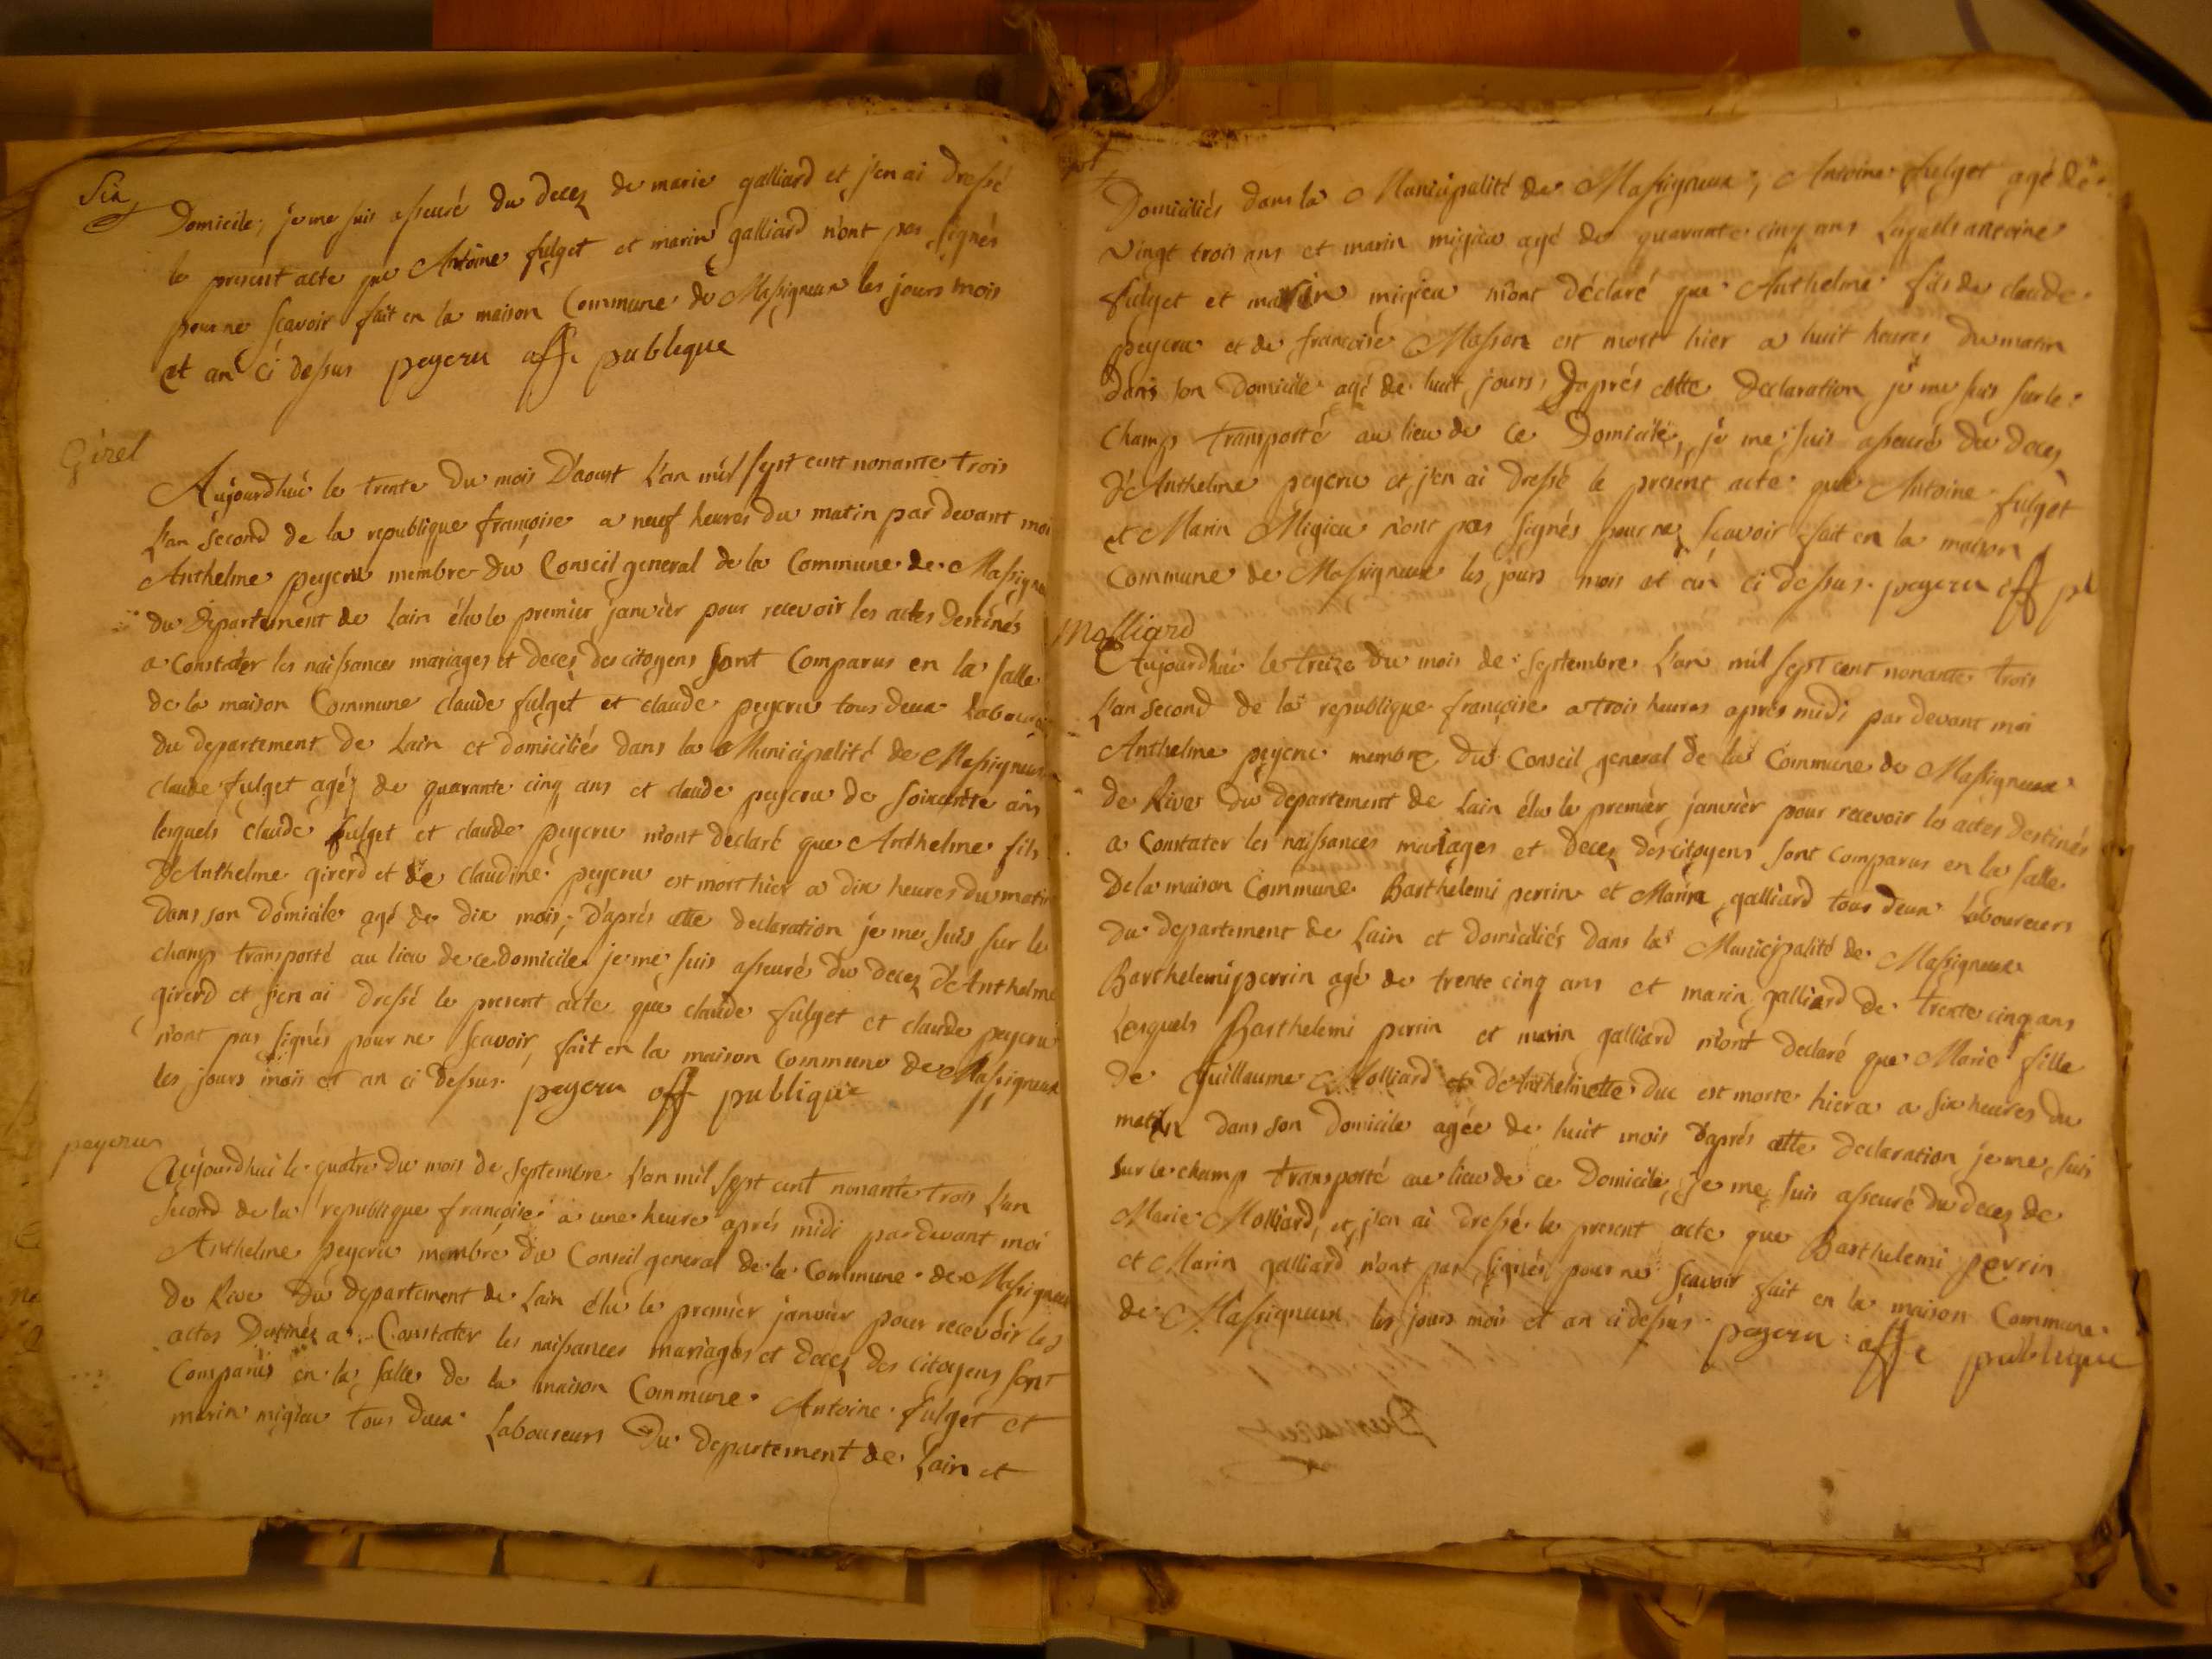 Six
Domicile, je me suis asseuré du decez de marie galliard et j'en ai dressé
le present acte que Antoine fulget et marin galliard n'ont pas signés
pour ne scavoir fait en la maison Commune de Massigneux les jours mois
et an ci dessus peyeru off publique
Girel
Aujourdhui le trente du mois D'aoust L'an mil sept cent nonante trois
L'an second de la republique françoise a neuf heures du matin par devant moi
Anthelme peyeru membre du Conseil general de la Commune de Massigneux
du Departement de Lain élu le premier janvièr pour recevoir les actes destinés
a Constater les naissances mariages et decez des citoyens sont Comparus en la salle
de la maison Commune claude fulget et claude peyeru tous deux Laboureurs
du departement de Lain et domiciliés dans la Municipalité de Massigneux
claude fulget agé de quarante cinq ans et claude peyeru de soixante ans
lesquels claude fulget et claude peyeru m'ont declaré que Anthelme fils
d'Anthelme girerd et de claudine peyeru est mort hier a dix heures du matin
dans son domicile agé de dix mois, d'aprés cette declaration je me suis sur le
champ transporté au lieu de ce domicile je me suis asseuré du decez d'Anthelme
girerd et j'en ai dressé le present acte que claude fulget et claude peyeru
n'ont pas signés pour ne scavoir, fait en la maison commune de Massigneux
les jours mois et an ci dessus. peyeru off publique
peyeru
Aujourdhui le quatre du mois de septembre L'an mil sept cent nonante trois L'an
second de la republique françoise a une heure aprés midi par devant moi
Anthelme peyeru membre du Conseil general de la Commune de Massigneux
de Rive du departement de Lain élu le premièr janvièr pour recevoir les
actes Destinéz a Constater les naissances mariages et decez des citoyens sont
Comparus en la salle de la maison Commune Antoine fulget et
marin migieu tous deux Laboureurs du departement de Lain et
Domiciliés dans la Municipalité de Massigneux, Antoine fulget agé de
vingt trois ans et marin migieu agé de quarante cinq ans Lesquels antoine
fulget et marin migieu m'ont déclaré que Anthelme fils de claude
peyeru et de françoise Masson est mort hier a huit heures du matin
dans son Domicile agé de huit jours, D'aprés cette Declaration je me suis sur le
Champ transporté au lieu de ce Domicile, je me suis asseuré du decez
D'Anthelme peyeru et j'en ai dressé le present acte que Antoine fulget
et Marin Migieu n'ont pas signés pour ne scavoir fait en la maison
Commune de Massigneux les jours mois et an ci dessus. peyeru off pu
Molliard
Aujourdhui le treize du mois de septembre L'an mil sept cent nonante trois
L'an second de la republique françoise a trois heures aprés midi par devant moi
Anthelme peyeru membre du Conseil general de la Commune de Massigneux
de Rive du departement de Lain élu le premièr janvièr pour recevoir les actes destinés
a Constater les naissances mariages et decez des citoyens sont comparus en la salle
De la maison Commune Barthelemi perrin et Marin galliard tous deux Laboureurs
du departement de Lain et domiciliés dans la Municipalité de Massigneux
Barthelemi perrin agé de trente cinq ans et marin galliard de trente cinq ans
Lesquels Barthelemi perrin et marin galliard m'ont declaré que Marie fille
de Guillaume Molliard et d'Anthelmette duc est morte hier a a six heures du
matin dans son Domicile agée de huit mois d'aprés cette declaration je me suis
sur le champ transporté au lieu de ce Domicile, je me suis asseuré du decez de
Marie Molliard, et j'en ai dressé le present acte que Barthelemi perrin
et Marin galliard n'ont pas signés, pour ne scavoir fait en la maison Commune
de Massigneux les jours mois et an ci dessus. peyeru off publique